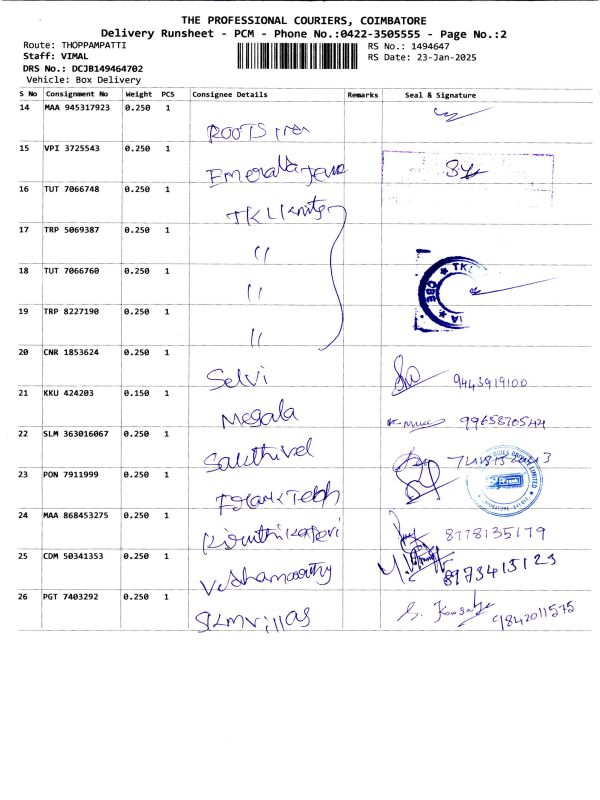 THE PROFESSIONAL COURIERS, COIMBATORE
Delivery Runsheet - PCM - Phone No.:0422-3505555 - Page No.:2
Route: THOPPAMPATTI
RS No.: 1494647
Staff: VIMAL
RS Date: 23-Jan-2025
DRS No.: DCJB149464702
Vehicle: Box Delivery
S No Consignment No Weight PCS Consignee Details Remarks Seal & Signature
14 MAA 945317923 0.250 1 ROOTS
15 VPI 3725543 0.250 1 Emerald
16 TUT 7066748 0.250 1 TKL
17 TRP 5069387 0.250 1 "
18 TUT 7066760 0.250 1 "
19 TRP 8227190 0.250 1 "
20 CNR 1853624 0.250 1 Selvi 9443919100
21 KKU 424203 0.150 1 Megala
22 SLM 363016067 0.250 1 Sakthivel
23 PON 7911999 0.250 1
24 MAA 868453275 0.250 1 8778135179
25 CDM 50341353 0.250 1 8973413123
26 PGT 7403292 0.250 1 9842011575